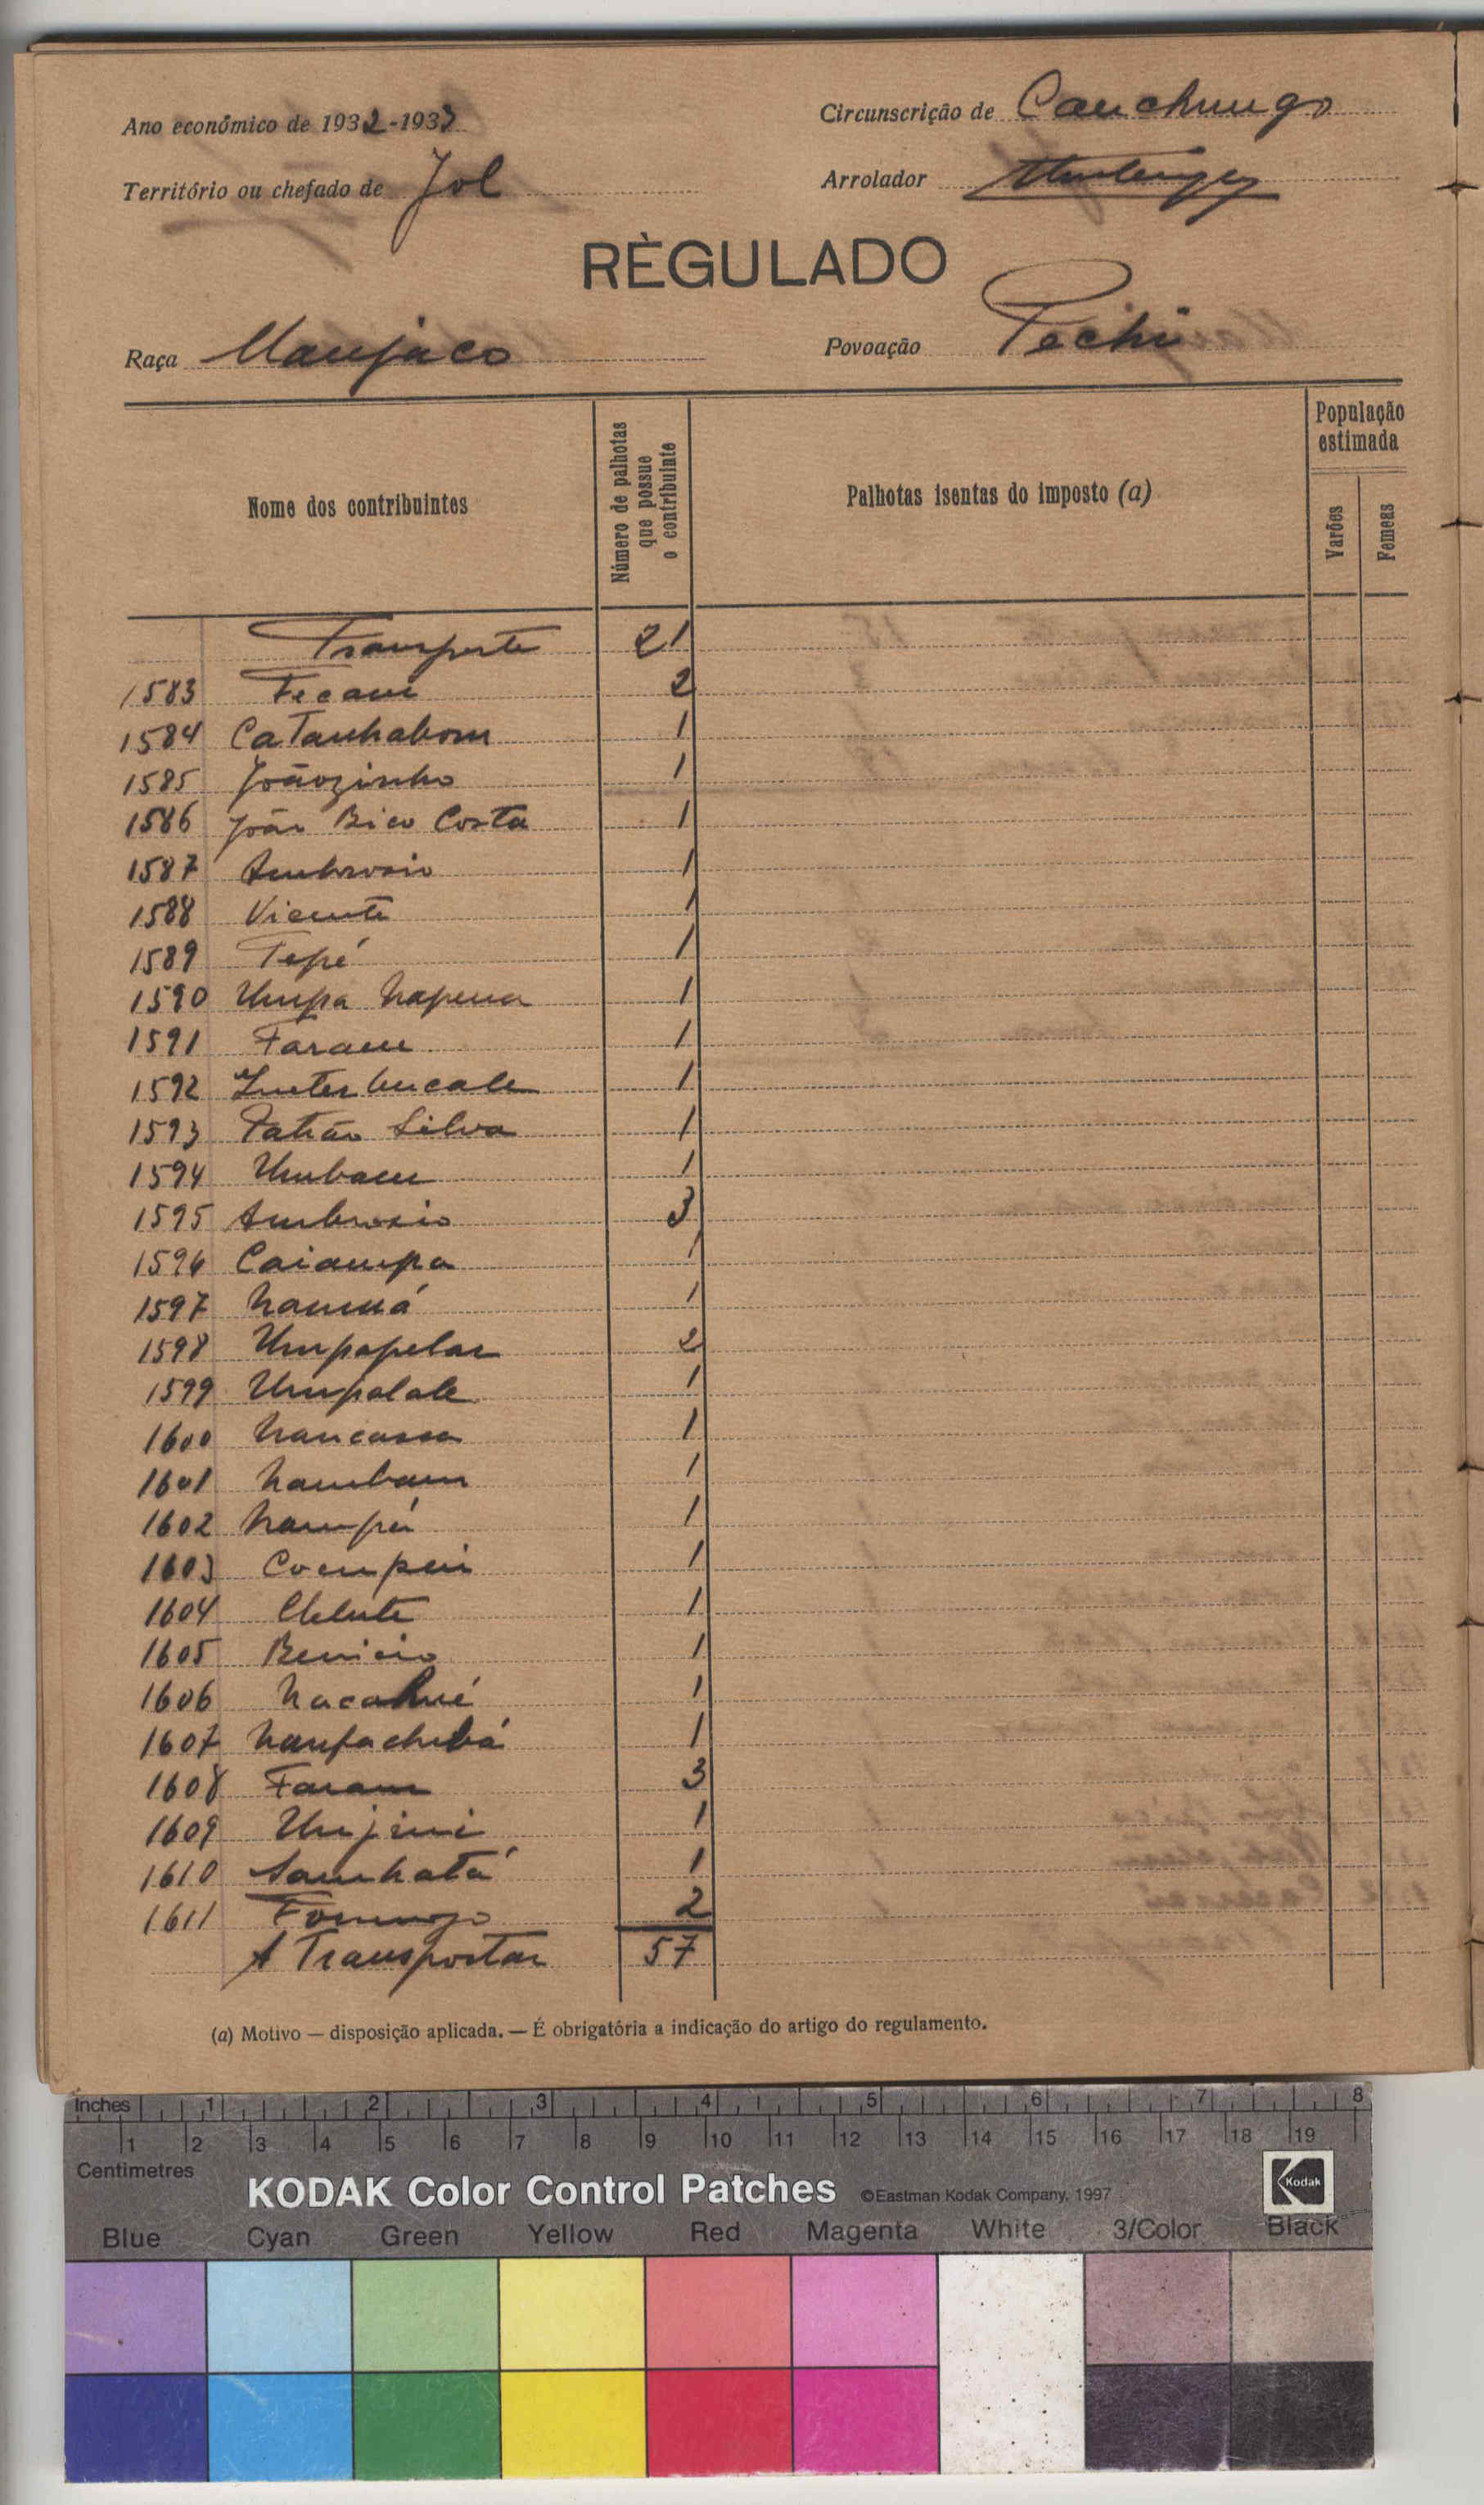 Ano económico de 1932-1933
Circunscrição de Canchungo
Território ou chefado de Jol
Arrolador
RÈGULADO
Raça Manjaco
Povoação Pechi
Nome dos contribuintes
Número de palhotas que possue o contribuinte
Palhotas isentas do imposto (a)
População estimada
Varões
Femeas
Transporte 21
1583 Fecani 2
1584 Catanhabom 1
1585 Joãozinho 1
1586 João Bico Costa 1
1587 Ambrosio 1
1588 Vicente 1
1589 Tepé 1
1590 Umpa Napena 1
1591 Faram 1
1592 1
1593 Silva 1
1594 Umbam 1
1595 Ambrosio 3
1596 Caiampa 1
1597 Nanuá 1
1598 Umpapelar 2
1599 Umpalale 1
1600 Nancassa 1
1601 Nambam 1
1602 Nampá 1
1603 Compui 1
1604 1
1605 Benicio 1
1606 1
1607 1
1608 Faram 3
1609 Unjini 1
1610 1
1611 2
A Transportar 57
(a) Motivo — disposição aplicada. — É obrigatória a indicação do artigo do regulamento.
Inches 1 2 3 4 5 6 7 8
1 2 3 4 5 6 7 8 9 10 11 12 13 14 15 16 17 18 19
Centimetres
KODAK Color Control Patches ©Eastman Kodak Company, 1997 Kodak
Blue Cyan Green Yellow Red Magenta White 3/Color Black